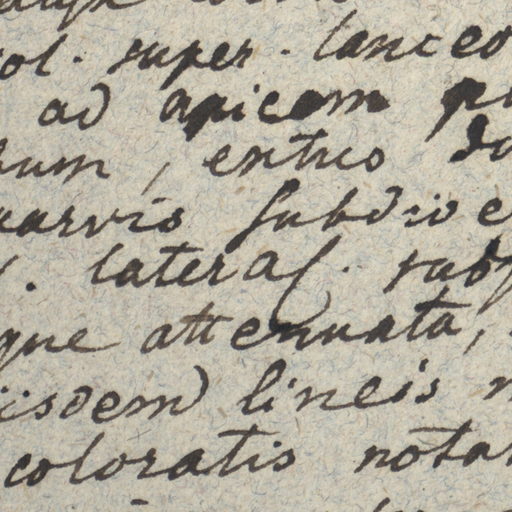 ol. super. lanceo
ad apicem pu
um, extus do
parvis subdive
l. lateral. sub
que attenuata,
iisdem lineis
coloratis nota